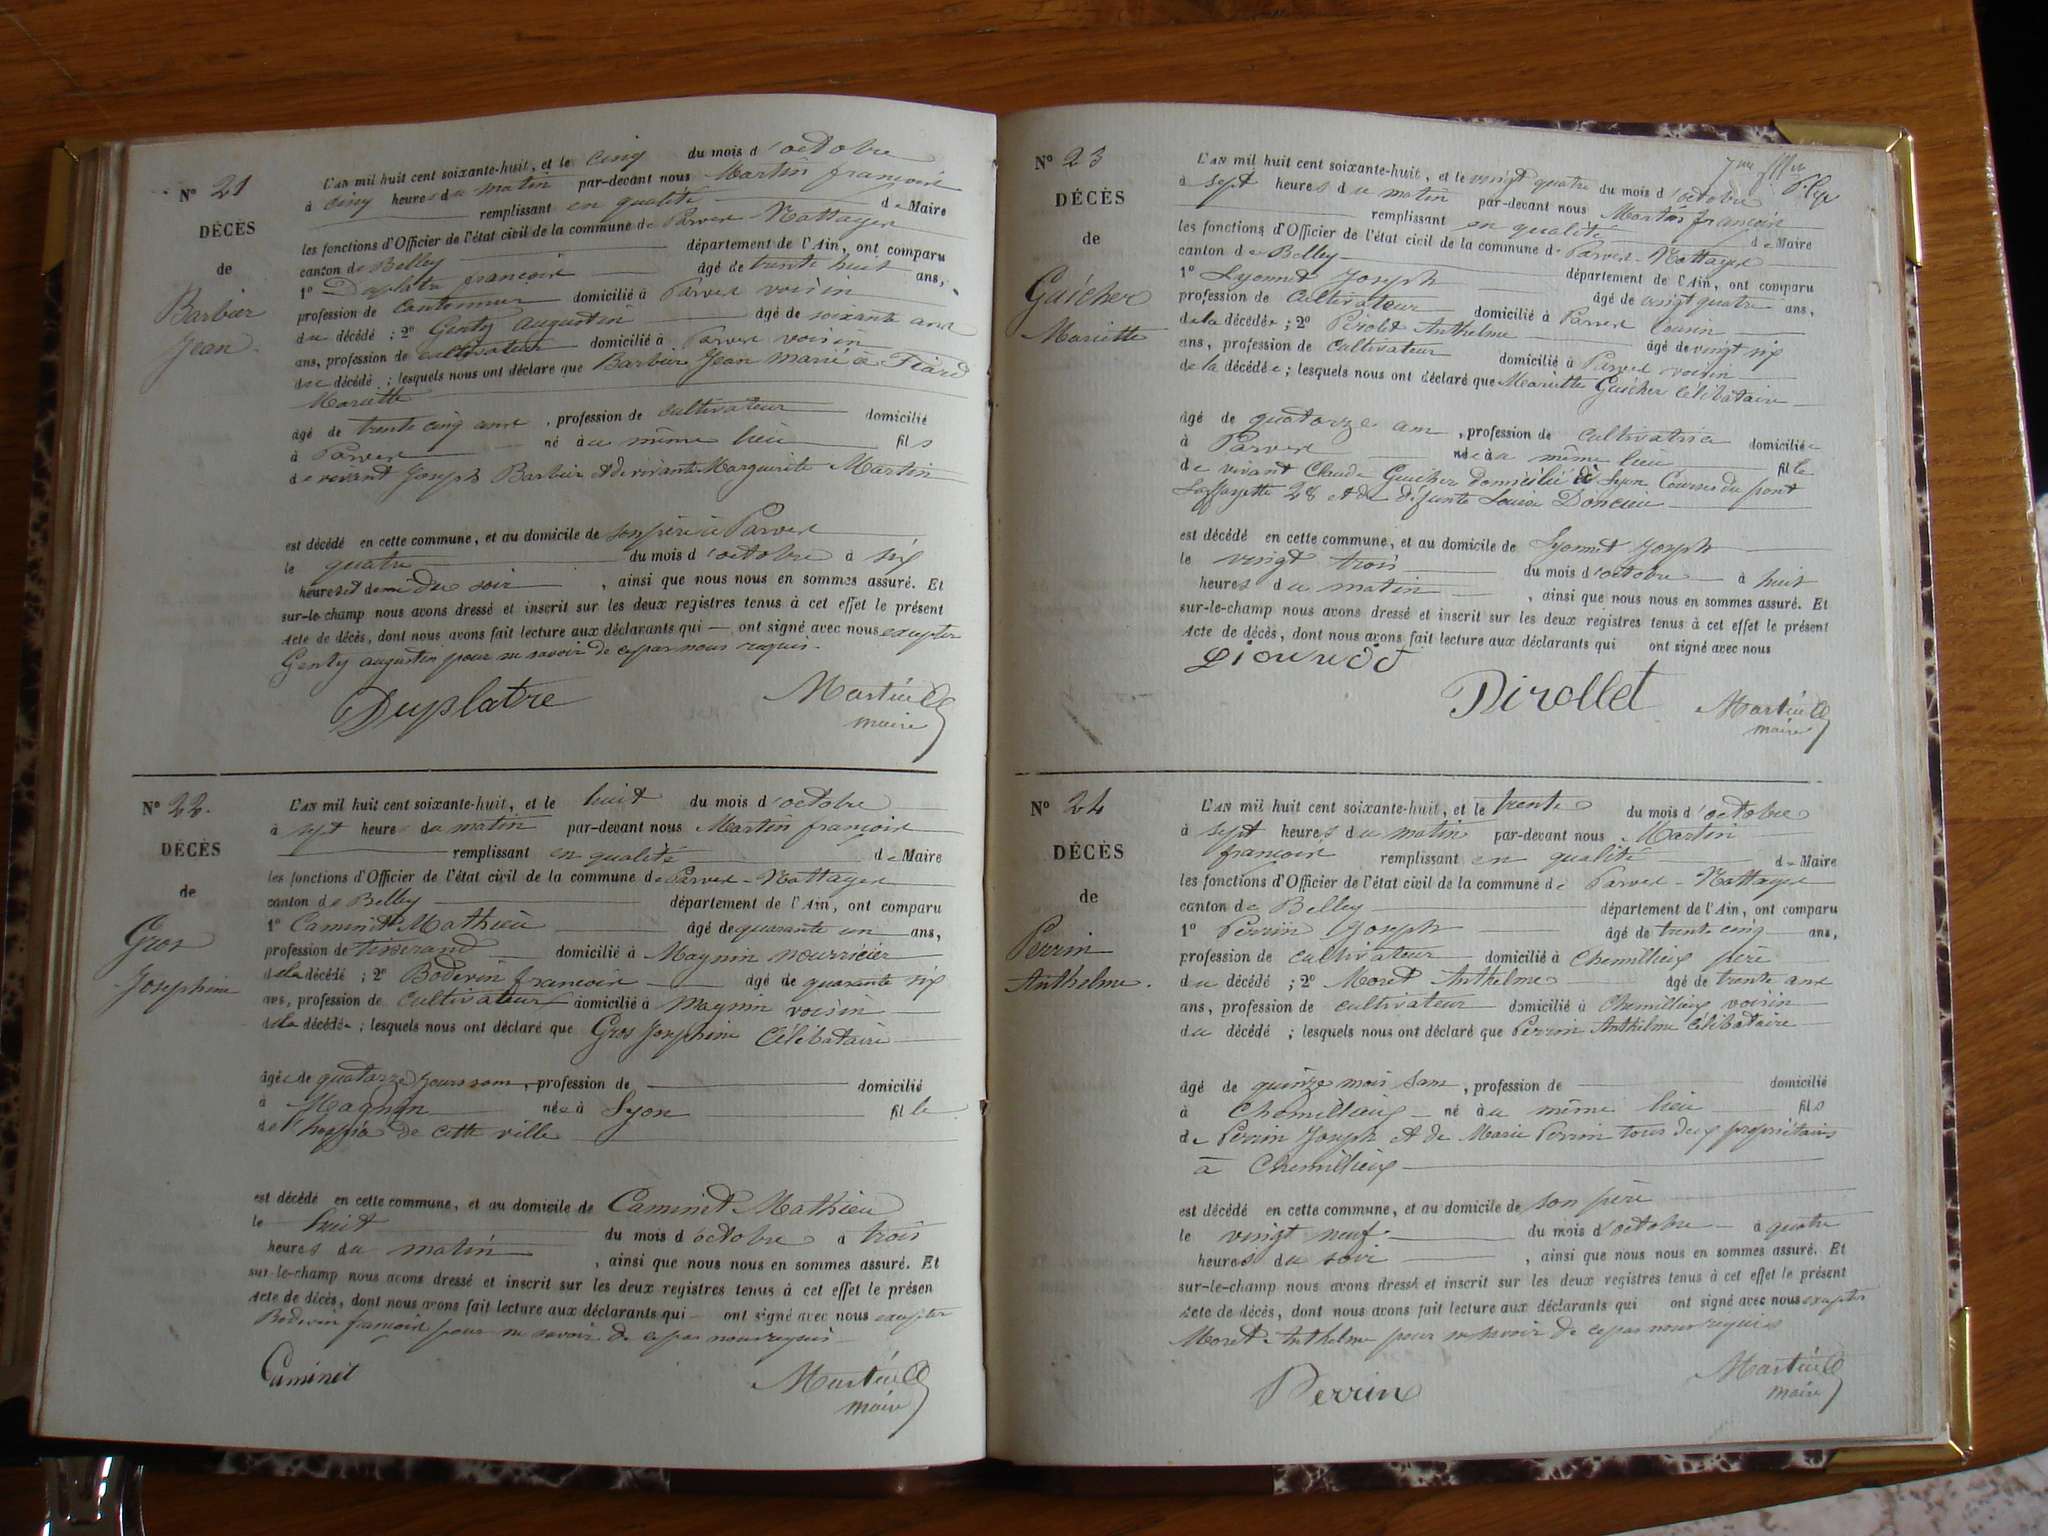 N° 21
DÉCÈS
de
Barbier
Jean.
L'AN mil huit cent soixante-huit, et le cinq du mois d'octobre
à cinq heures du matin par-devant nous Martin françois
remplissant en qualité de Maire
les fonctions d'Officier de l'état civil de la commune de Parves-Nattages
canton de Belley département de l'Ain, ont comparu
1° Duplatre françois âgé de trente huit ans,
profession de Cantonnier domicilié à Parves voisin
du décédé ; 2° Genty Augustin âgé de soixante ans
ans, profession de cultivateur domicilié à Parves voisin
du décédé ; lesquels nous ont déclaré que Barbier Jean marié à Fiard
Mariette
âgé de trente cinq ans, profession de cultivateur domicilié
à Parves né au même lieu fils
de vivant Joseph Barbier et de vivante Marguerite Martin
est décédé en cette commune, et au domicile de son père à Parves
le quatre du mois d'octobre à six
heures et demi du soir, ainsi que nous nous en sommes assuré. Et
sur-le-champ nous avons dressé et inscrit sur les deux registres tenus à cet effet le présent
Acte de décès, dont nous avons fait lecture aux déclarants qui — ont signé avec nous excepter
Genty Augustin pour ne savoir de ce par nous requis.
Duplatre Martin
maire
N° 22.
DÉCÈS
de
Gros
Josephine
L'AN mil huit cent soixante-huit, et le huit du mois d'octobre
à sept heures du matin par-devant nous Martin françois
remplissant en qualité de Maire
les fonctions d'Officier de l'état civil de la commune de Parves-Nattages
canton de Belley département de l'Ain, ont comparu
1° Caminet Mathieu âgé de quarante un ans,
profession de tisserand domicilié à Magnin nourricier
de la décédé ; 2° Boderin françois âgé de quarante six
ans, profession de cultivateur domicilié à Magnin voisin
de la décédée ; lesquels nous ont déclaré que Gros Josephine Célibataire
âgée de quatorze jours sans, profession de domicilié
à Magnin née à Lyon fille
de l'hospice de cette ville
est décédé en cette commune, et au domicile de Caminet Mathieu
le huit du mois d'octobre à trois
heures du matin, ainsi que nous nous en sommes assuré. Et
sur-le-champ nous avons dressé et inscrit sur les deux registres tenus à cet effet le présen
Acte de décès, dont nous avons fait lecture aux déclarants qui — ont signé avec nous excepter
Boderin françois pour ne savoir de ce par nous requis
Caminet Martin
maire
7me
N° 23
DÉCÈS
de
Guicher
Mariette
L'AN mil huit cent soixante-huit, et le vingt quatre du mois d'octobre
à sept heures du matin par-devant nous Martin françois
remplissant en qualité de Maire
les fonctions d'Officier de l'état civil de la commune de Parves-Nattages
canton de Belley département de l'Ain, ont comparu
1° Lyonnet Joseph âgé de vingt quatre ans,
profession de Cultivateur domicilié à Parves cousin
de la décédée ; 2° Pirolet Anthelme âgé de vingt six
ans, profession de Cultivateur domicilié à Parves voisin
de la décédée ; lesquels nous ont déclaré que Mariette Guicher Célibataire
âgé de quatorze ans, profession de cultivatrice domiciliée
à Parves née au même lieu fille
de vivant Claude Guicher Domicilié à Lyon Courses du pont
Laffayette 28 et de défunte Louise Doncieu
est décédé en cette commune, et au domicile de Lyonnet Joseph
le vingt trois du mois d'octobre à huit
heures du matin, ainsi que nous nous en sommes assuré. Et
sur-le-champ nous avons dressé et inscrit sur les deux registres tenus à cet effet le présent
Acte de décès, dont nous avons fait lecture aux déclarants qui ont signé avec nous
Pirollet Martin
maire
N° 24
DÉCÈS
de
Perrin
Anthelme.
L'AN mil huit cent soixante-huit, et le trente du mois d'octobre
à sept heures du matin par-devant nous Martin
françois remplissant en qualité de Maire
les fonctions d'Officier de l'état civil de la commune de Parves-Nattages
canton de Belley département de l'Ain, ont comparu
1° Perrin Joseph âgé de trente cinq ans,
profession de cultivateur domicilié à Chemillieux père
du décédé ; 2° Moret Anthelme âgé de trente ans
ans, profession de cultivateur domicilié à Chemillieux voisin
du décédé ; lesquels nous ont déclaré que Perrin Anthelme Célibataire
âgé de quinze mois sans, profession de domicilié
à Chemillieux né au même lieu fils
de Perrin Joseph et de Marie Perrin tous deux propriétaires
à Chemillieux
est décédé en cette commune, et au domicile de son père
le vingt neuf du mois d'octobre à quatre
heures du soir, ainsi que nous nous en sommes assuré. Et
sur-le-champ nous avons dressé et inscrit sur les deux registres tenus à cet effet le présent
Acte de décès, dont nous avons fait lecture aux déclarants qui ont signé avec nous excepter
Moret Anthelme pour ne savoir de ce par nous requis
Perrin Martin
maire